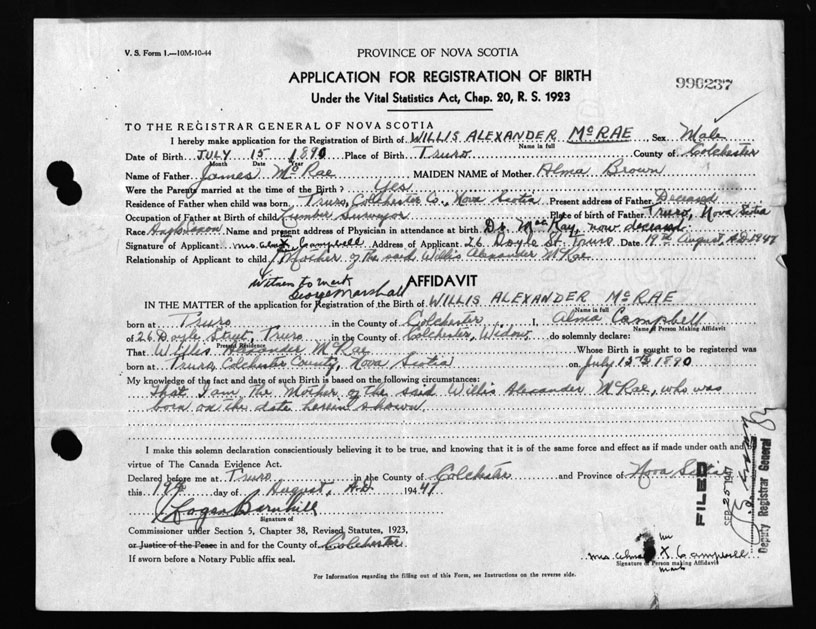 V. S. Form 1.—10M-10-44
PROVINCE OF NOVA SCOTIA
APPLICATION FOR REGISTRATION OF BIRTH
Under the Vital Statistics Act, Chap. 20, R. S. 1923
990237
TO THE REGISTRAR GENERAL OF NOVA SCOTIA
I hereby make application for the Registration of Birth of WILLIS ALEXANDER McRAE Sex Male
Name in full
Date of Birth JULY 15 1890 Place of Birth Truro County of Colchester
Month Date Year
Name of Father James McRae MAIDEN NAME of Mother Alma Brown
Were the Parents married at the time of the Birth? Yes
Residence of Father when child was born, Truro, Colchester Co., Nova Scotia Present address of Father Deceased
Occupation of Father at Birth of child Lumber Surveyor Place of birth of Father Truro, Nova Scotia
Race Anglo Saxon Name and present address of Physician in attendance at birth Dr. MacKay, now deceased.
Signature of Applicant Mrs Alma X Campbell Address of Applicant 26 Doyle St. Truro Date 19th August, A.D. 1947
Relationship of Applicant to child Mother of the said Willis Alexander McRae
Witness to mark
George Marshall
AFFIDAVIT
IN THE MATTER of the application for Registration of the Birth of WILLIS ALEXANDER McRAE
Name in full
born at Truro in the County of Colchester I, Alma Campbell
Name of Person Making Affidavit
of 26 Doyle Street, Truro in the County of Colchester, Widow, do solemnly declare:
Present Residence
That Willis Alexander McRae Whose Birth is sought to be registered was
born at Truro, Colchester County, Nova Scotia on July 15th 1890
My knowledge of the fact and date of such Birth is based on the following circumstances:
That I am the Mother of the said Willis Alexander McRae, who was
born on the date herein shown.
I make this solemn declaration conscientiously believing it to be true, and knowing that it is of the same force and effect as if made under oath and by
virtue of The Canada Evidence Act.
Declared before me at Truro in the County of Colchester and Province of Nova Scotia
this 19th day of August, A.D. 1947
Logan Barnhill
Signature of
Commissioner under Section 5, Chapter 38, Revised Statutes, 1923,
or Justice of the Peace in and for the County of Colchester
If sworn before a Notary Public affix seal.
FILED
SEP 25 1947
Deputy Registrar General
Mrs Alma X Campbell
Signature of Person making Affidavit
mark
For Information regarding the filling out of this Form, see Instructions on the reverse side.